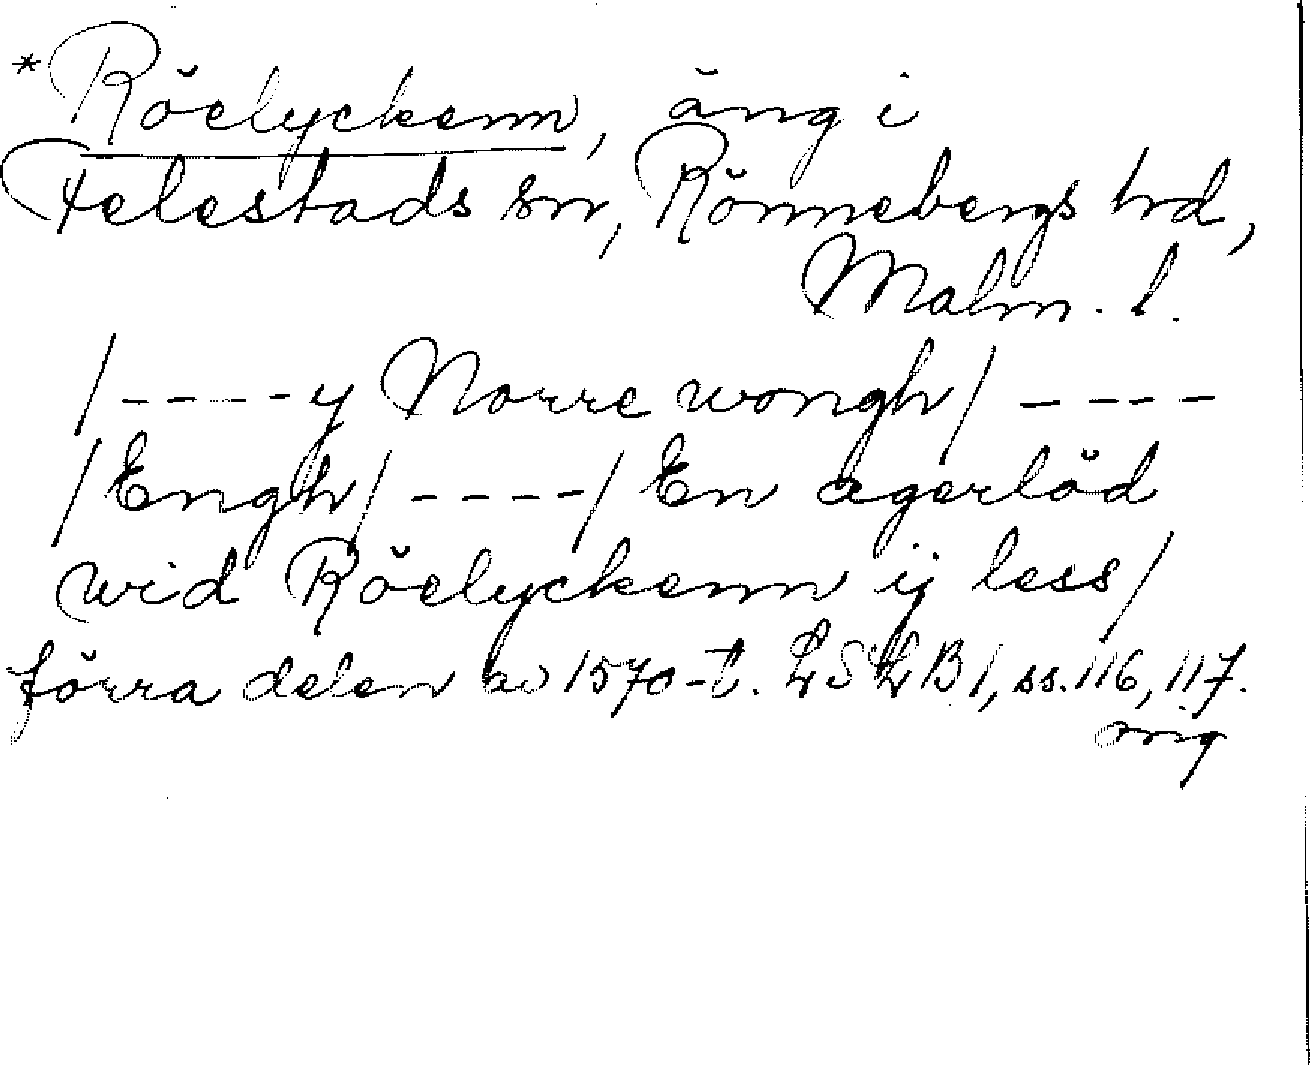 *Röelyckenn, äng i
Felestads sn, Rönnebergs hd,
Malm. l.
/----y Norre wongh/----
/Engh/----/En agerlöd
wid Röelyckenn ij less/
förra delen av 1570-t. LSLB 1, ss. 116, 117.